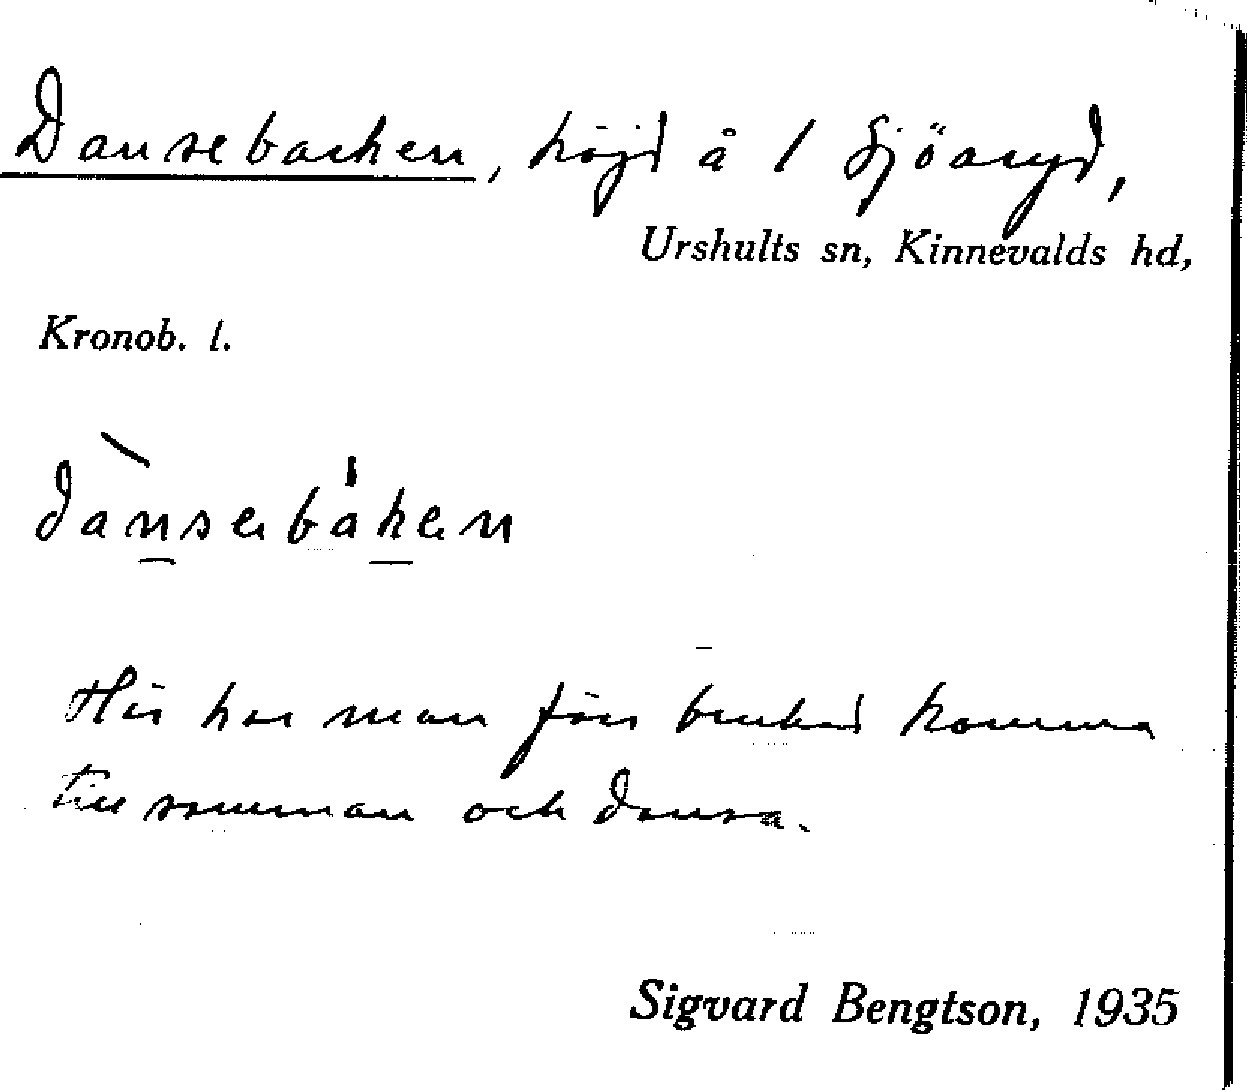 Dansebacken, höjd å 1 Sjöaryd,
Urshults sn, Kinnevalds hd,
Kronob. l.
dansebaken
Här har man förr brukad komma
till samman och dansa.
Sigvard Bengtson, 1935